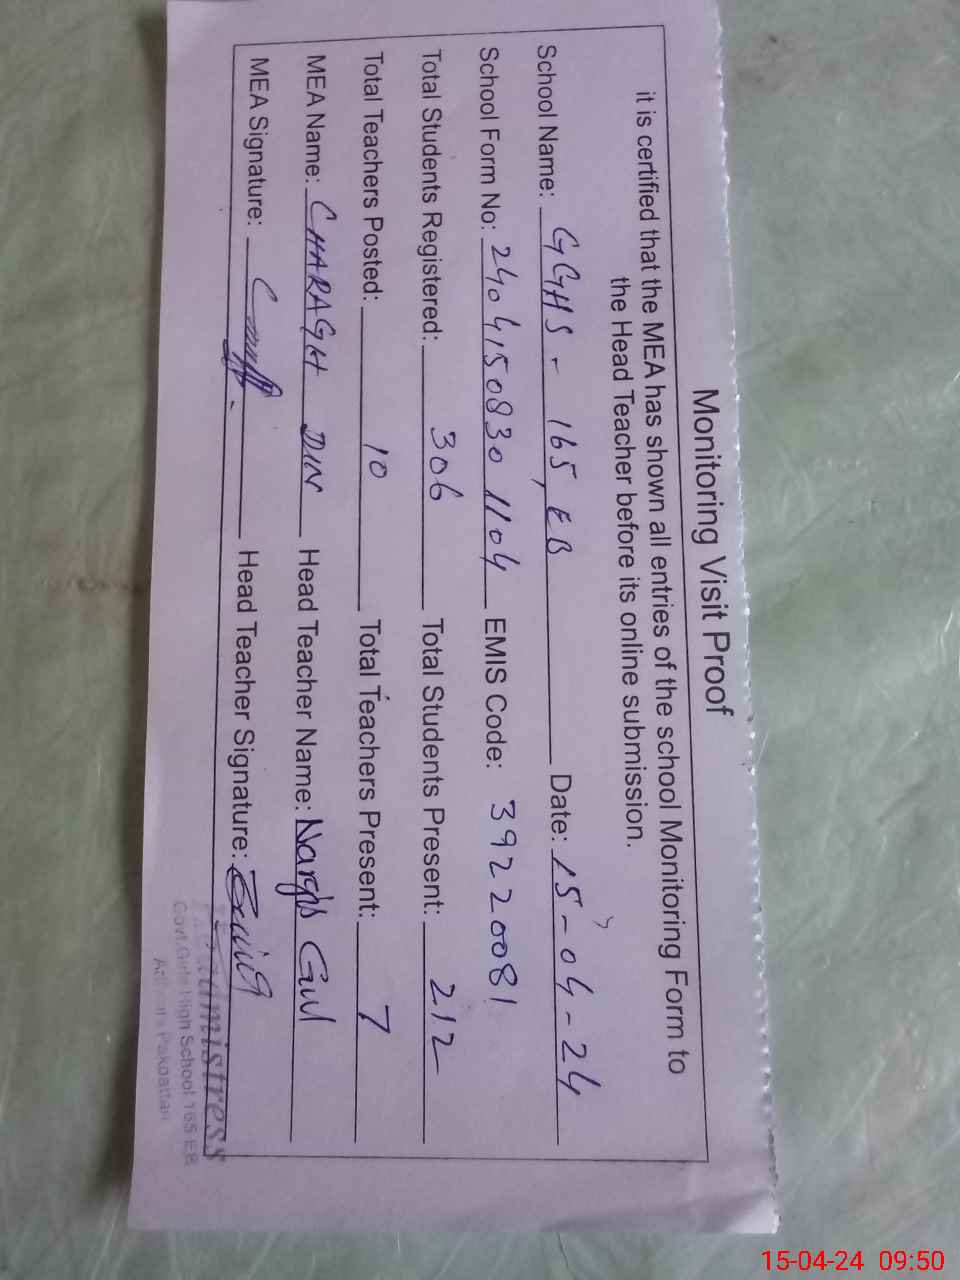 Monitoring Visit Proof
it is certified that the MEA has shown all entries of the school Monitoring Form to
the Head Teacher before its online submission.
School Name: GGHS - 165, EB Date: 15-04-24
School Form No: 2404150830 1104 EMIS Code: 39220081
Total Students Registered: 306 Total Students Present: 212
Total Teachers Posted: 10 Total Teachers Present: 7
MEA Name: CHARAGH DIN Head Teacher Name: Nargis Gul
MEA Signature: Head Teacher Signature:
Headmistress
Govt.Girls High School 165 EB
Pakpattan
15-04-24 09:50